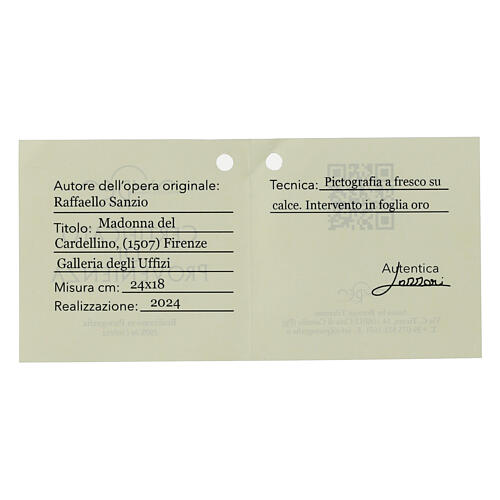 Autore dell'opera originale:
Raffaello Sanzio
Titolo: Madonna del
Cardellino, (1507) Firenze
Galleria degli Uffizi
Misura cm: 24x18
Realizzazione: 2024
Tecnica: Pictografia a fresco su
calce. Intervento in foglia oro
Autentica